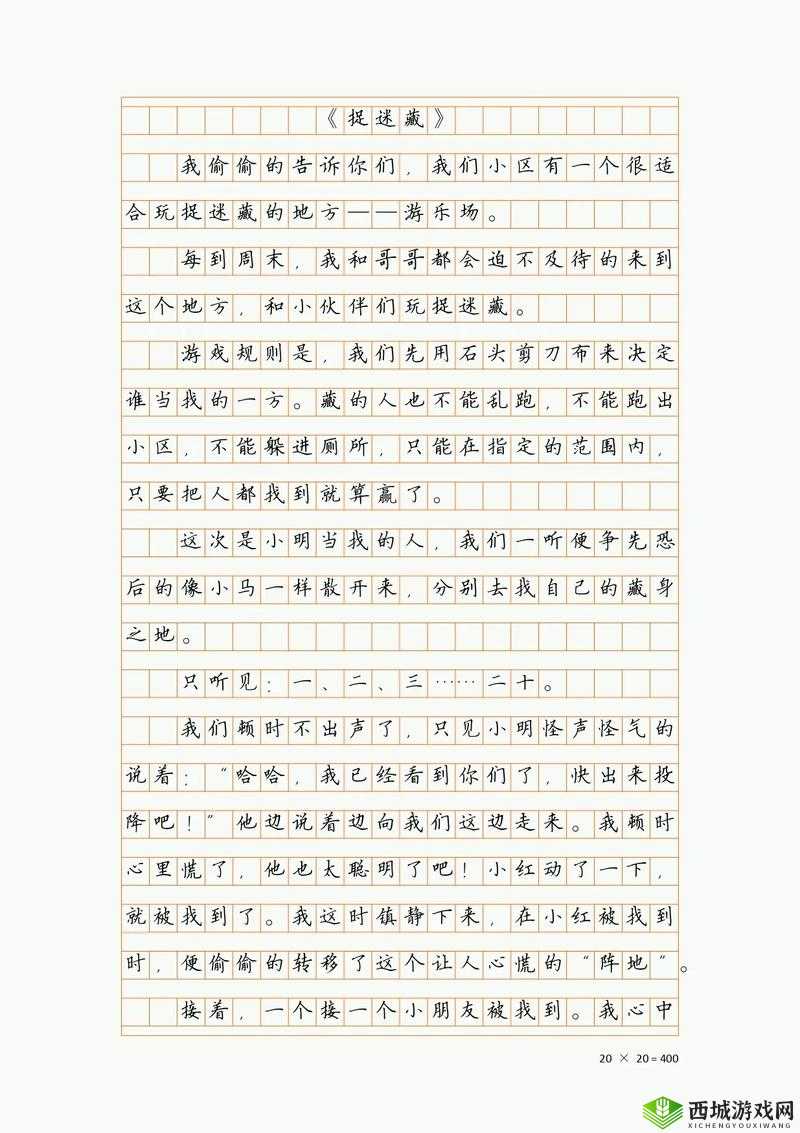 《捉迷藏》
我偷偷的告诉你们，我们小区有一个很适
合玩捉迷藏的地方——游乐场。
每到周末，我和哥哥都会迫不及待的来到
这个地方，和小伙伴们玩捉迷藏。
游戏规则是，我们先用石头剪刀布来决定
谁当找的一方。藏的人也不能乱跑，不能跑出
小区，不能躲进厕所，只能在指定的范围内，
只要把人都找到就算赢了。
这次是小明当找的人，我们一听便争先恐
后的像小马一样散开来，分别去找自己的藏身
之地。
只听见：一、二、三……二十。
我们顿时不出声了，只见小明怪声怪气的
说着：“哈哈，我已经看到你们了，快出来投
降吧！”他边说着边向我们这边走来。我顿时
心里慌了，他也太聪明了吧！小红动了一下，
就被找到了。我这时镇静下来，在小红被找到
时，便偷偷的转移了这个让人心慌的“阵地”。
接着，一个接一个小朋友被找到。我心中
20 × 20=400
西城游戏网
XICHENGYOUXIWANG